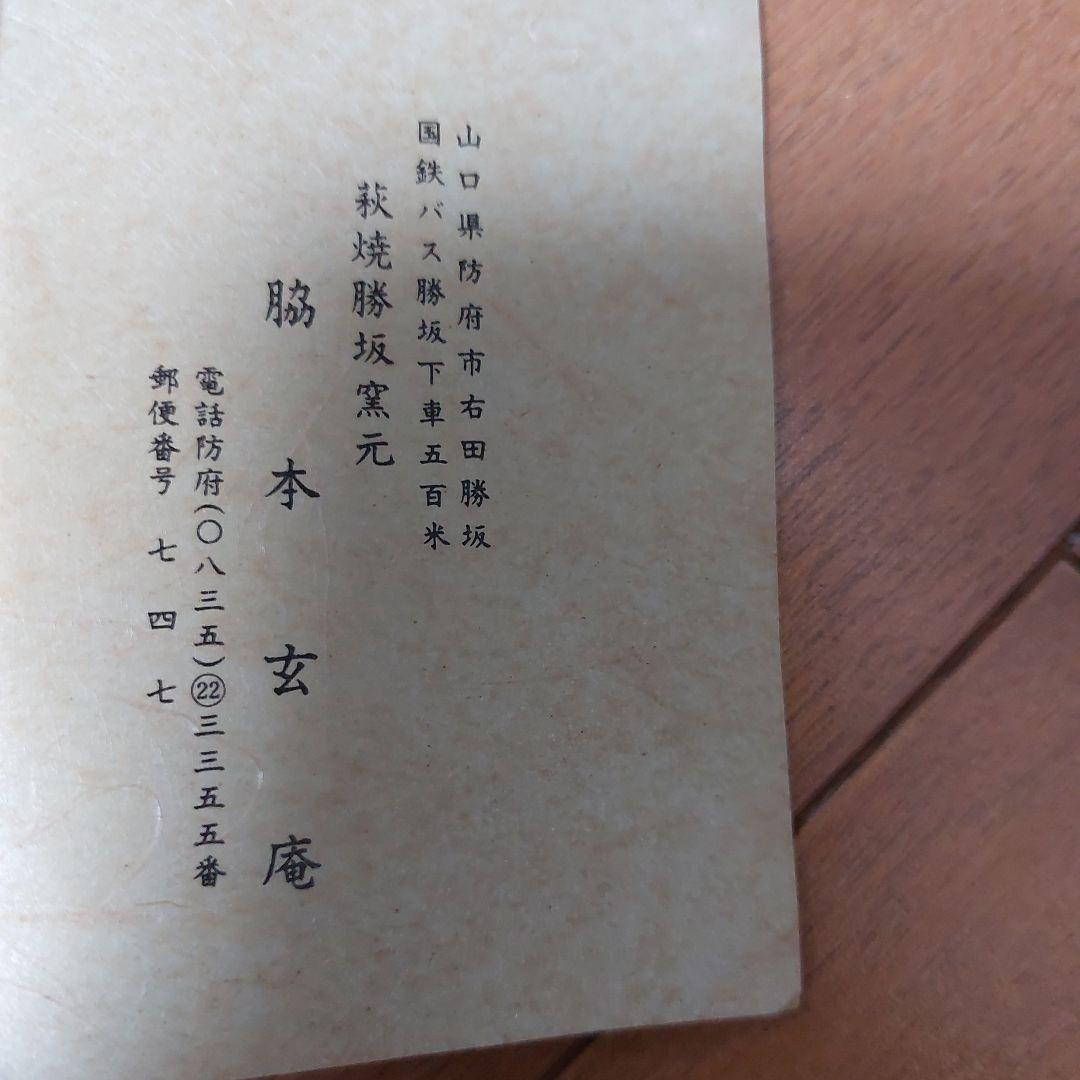 山口県防府市右田勝坂
国鉄バス勝坂下車五百米
萩焼勝坂窯元
脇本玄庵
電話防府(〇八三五)㉒三三五五番
郵便番号 七四七